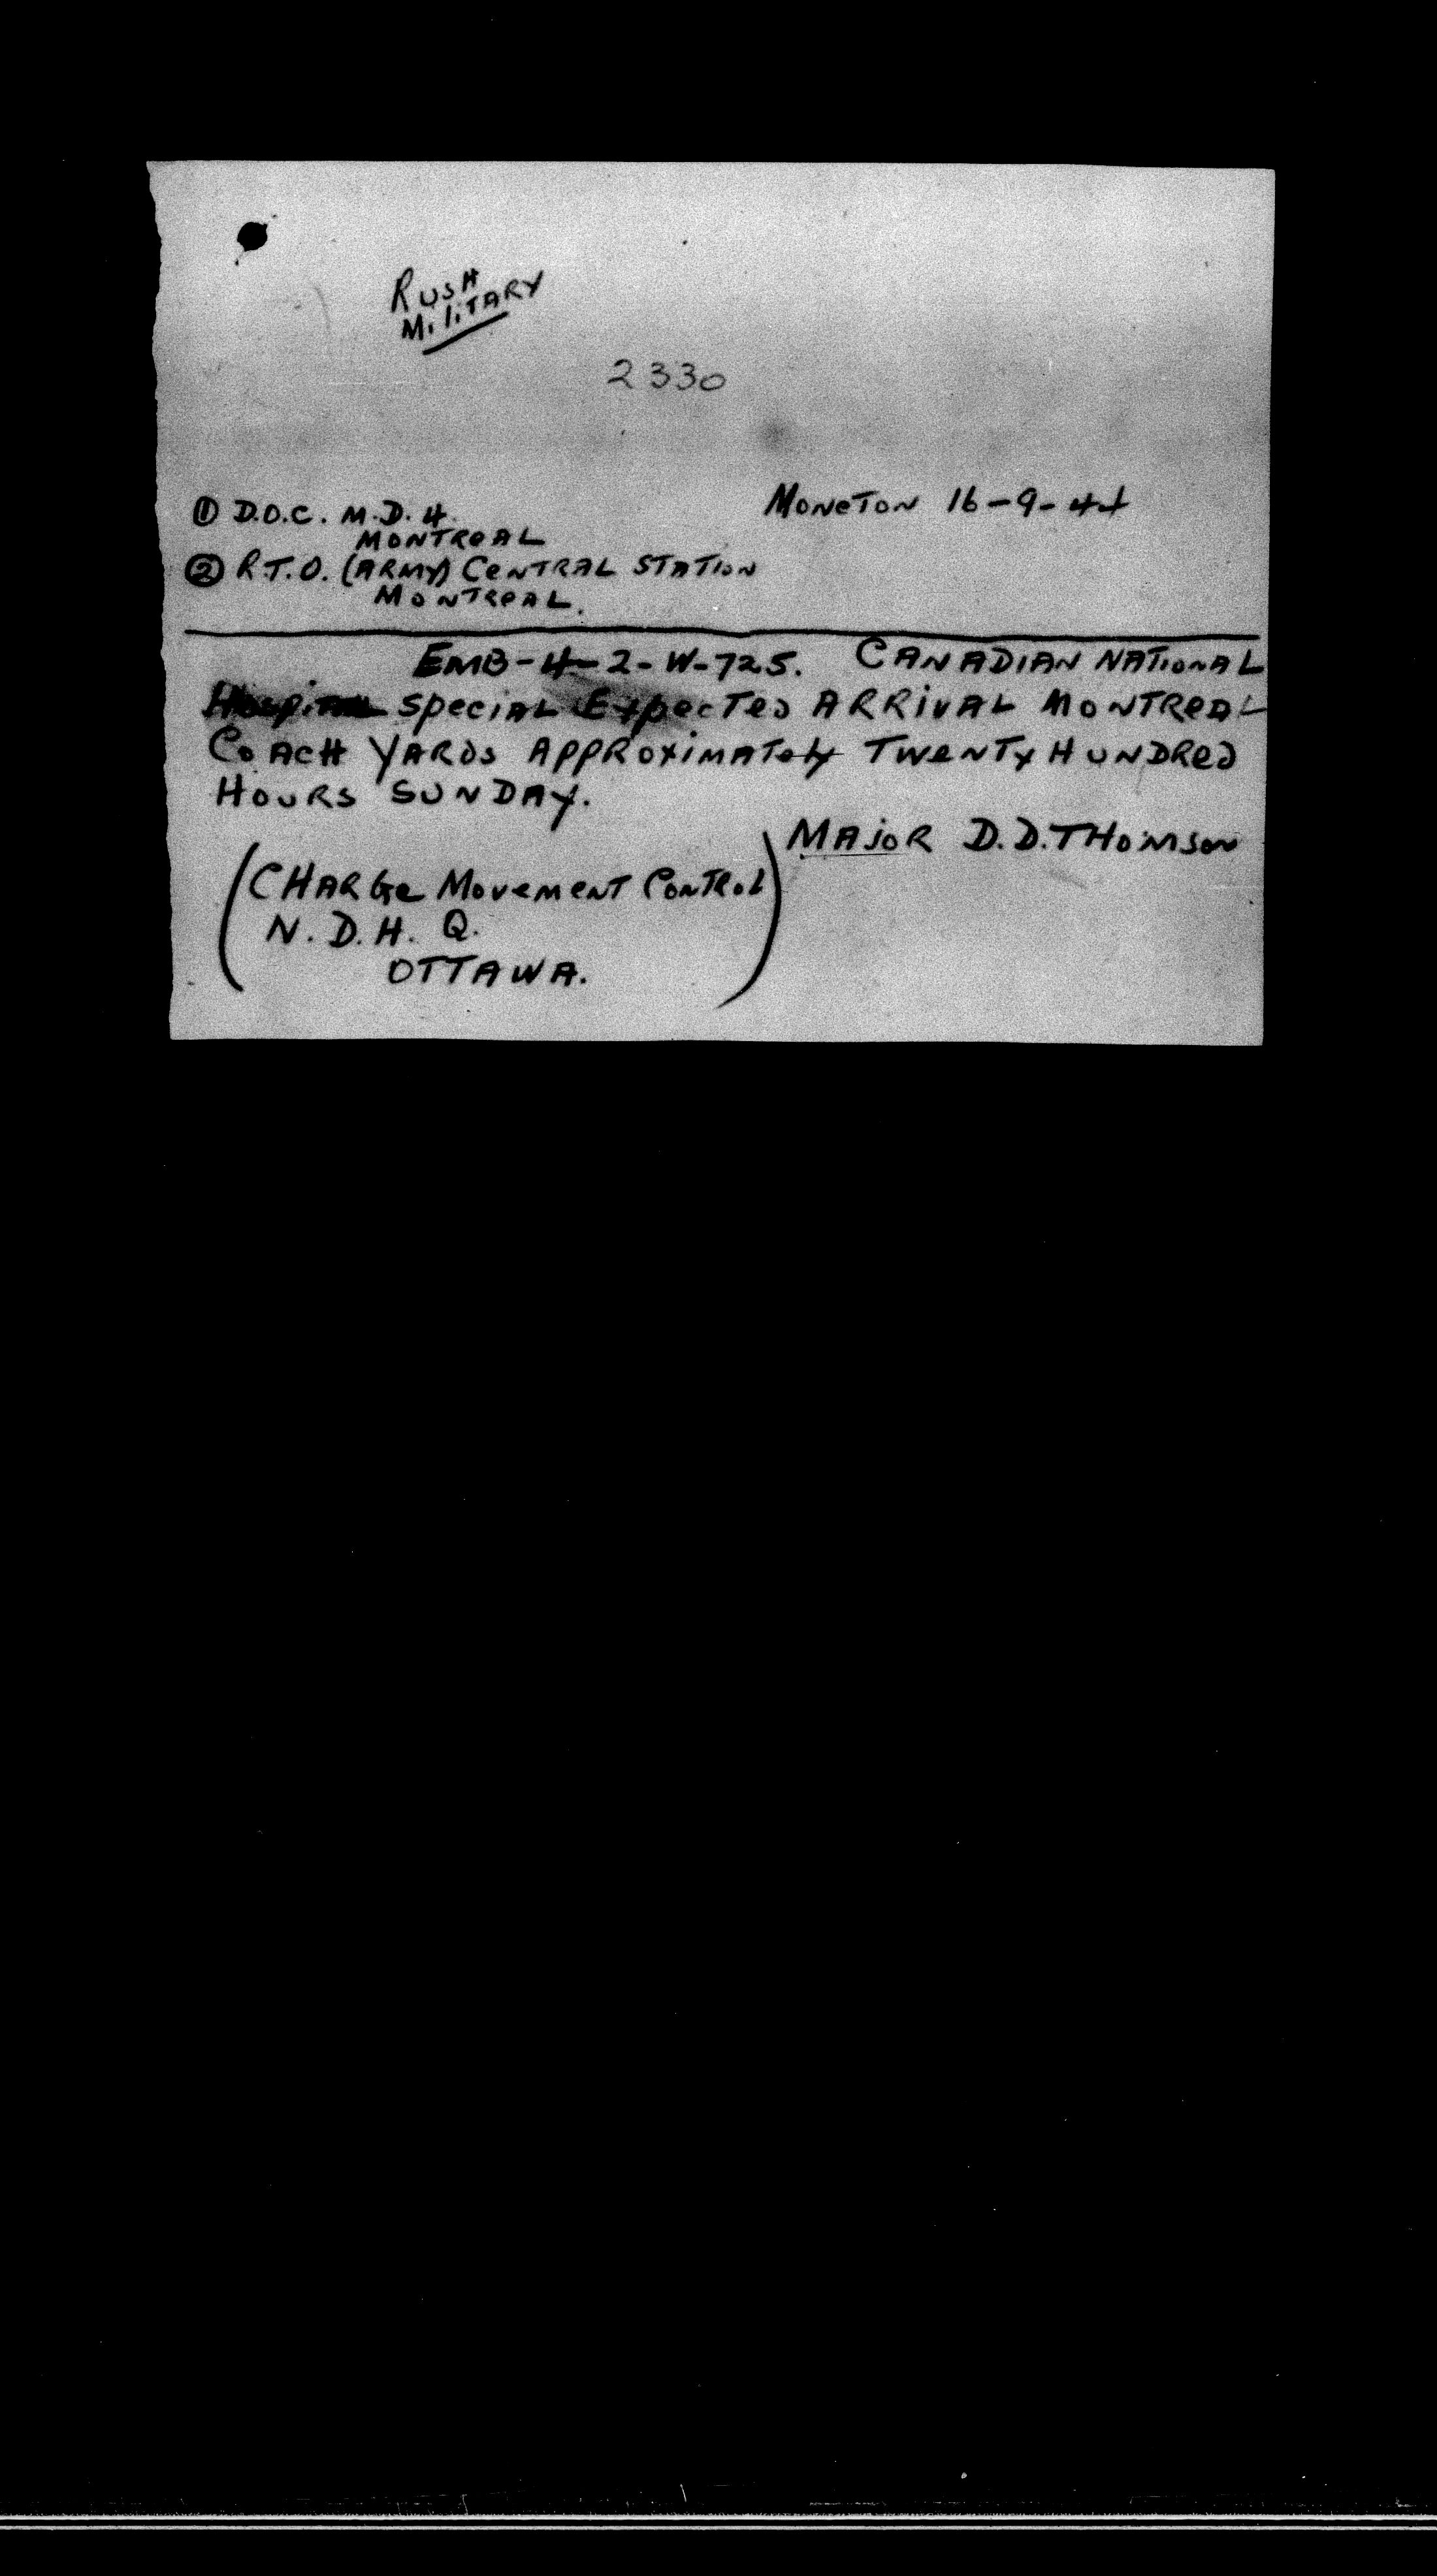 Rush
Military
2330
① D.O.C. M.D. 4. Moncton 16-9-44
Montreal
② R.T.O. (Army) Central Station
Montreal.
EMB-4-2-W-725. Canadian National
Hospital Special Expected Arrival Montreal
Coach Yards Approximately Twenty Hundred
Hours Sunday.
Major D.D. Thomson
(Charge Movement Control)
N.D.H.Q.
Ottawa.